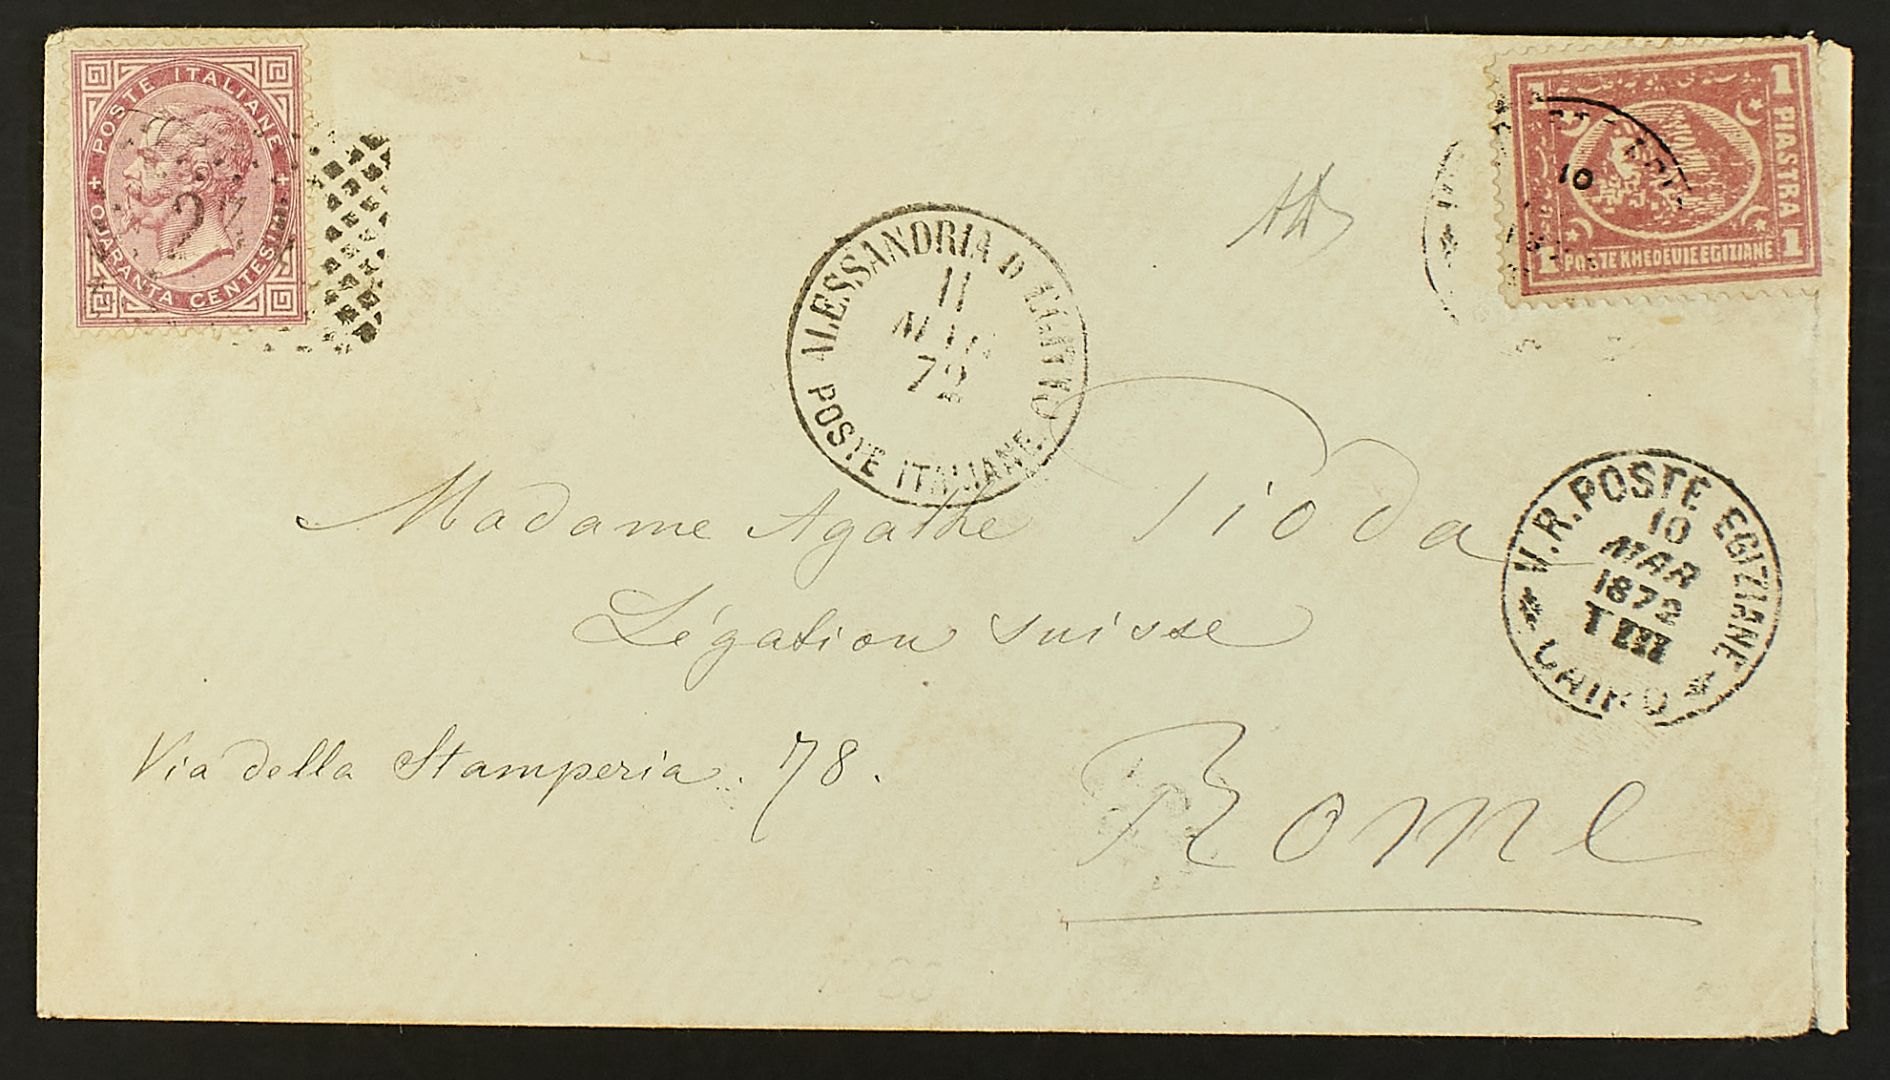 POSTE ITALIANE
QUARANTA CENTESIMI
1 PIASTRA 1
1 POSTE KHEDEUIE EGIZIANE
10
ALESSANDRIA D'EGITTO
11
MAR
72
POSTE ITALIANE
V.R. POSTE EGIZIANE
10
MAR
1872
T III
CAIRO
Madame Agathe Pioda
Légation suisse
Via della Stamperia. 78.
Rome